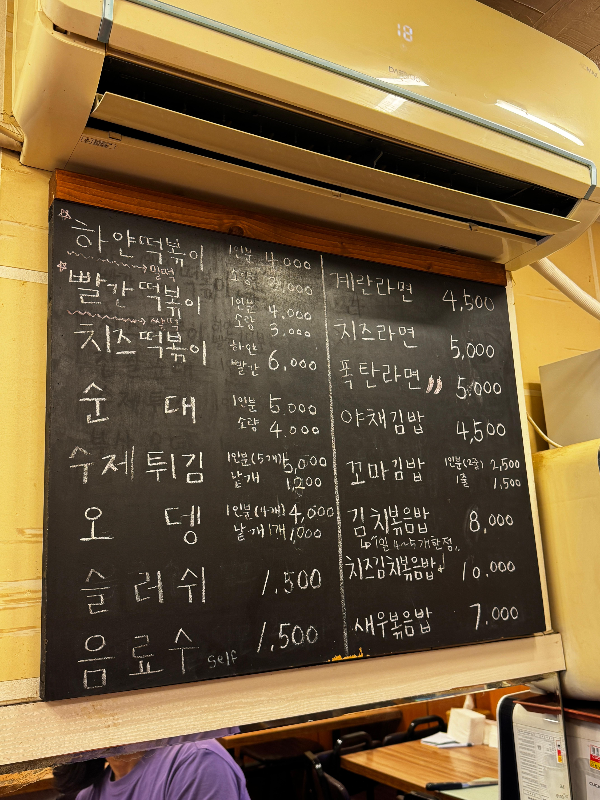 18
하얀떡볶이 1인분 4,000
소량 3,000
밀떡
빨간떡볶이 1인분 4,000
소량 3,000
쌀떡
치즈떡볶이 하얀 빨간 6,000
순대 1인분 5,000
소량 4,000
수제튀김 1인분(5개) 5,000
낱개 1,200
오뎅 1인분(4개) 4,000
낱개 1개 1,000
슬러쉬 1,500
음료수 self 1,500
계란라면 4,500
치즈라면 5,000
폭탄라면 5,000
야채김밥 4,500
꼬마김밥 1인분(2줄) 2,500
1줄 1,500
김치볶음밥 8,000
1일 4~5개한정
치즈김치볶음밥 10,000
새우볶음밥 7,000